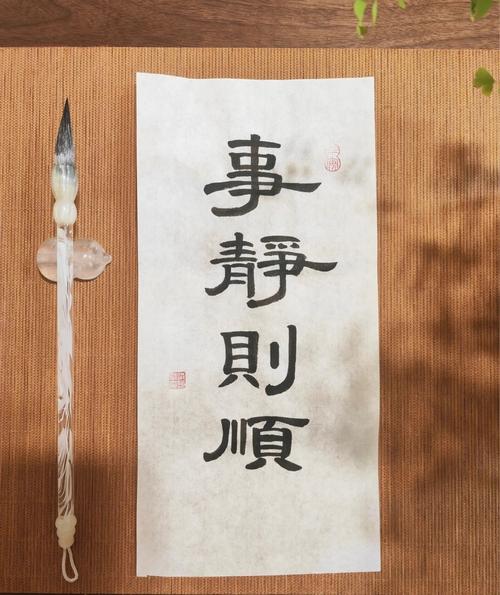 事靜則順